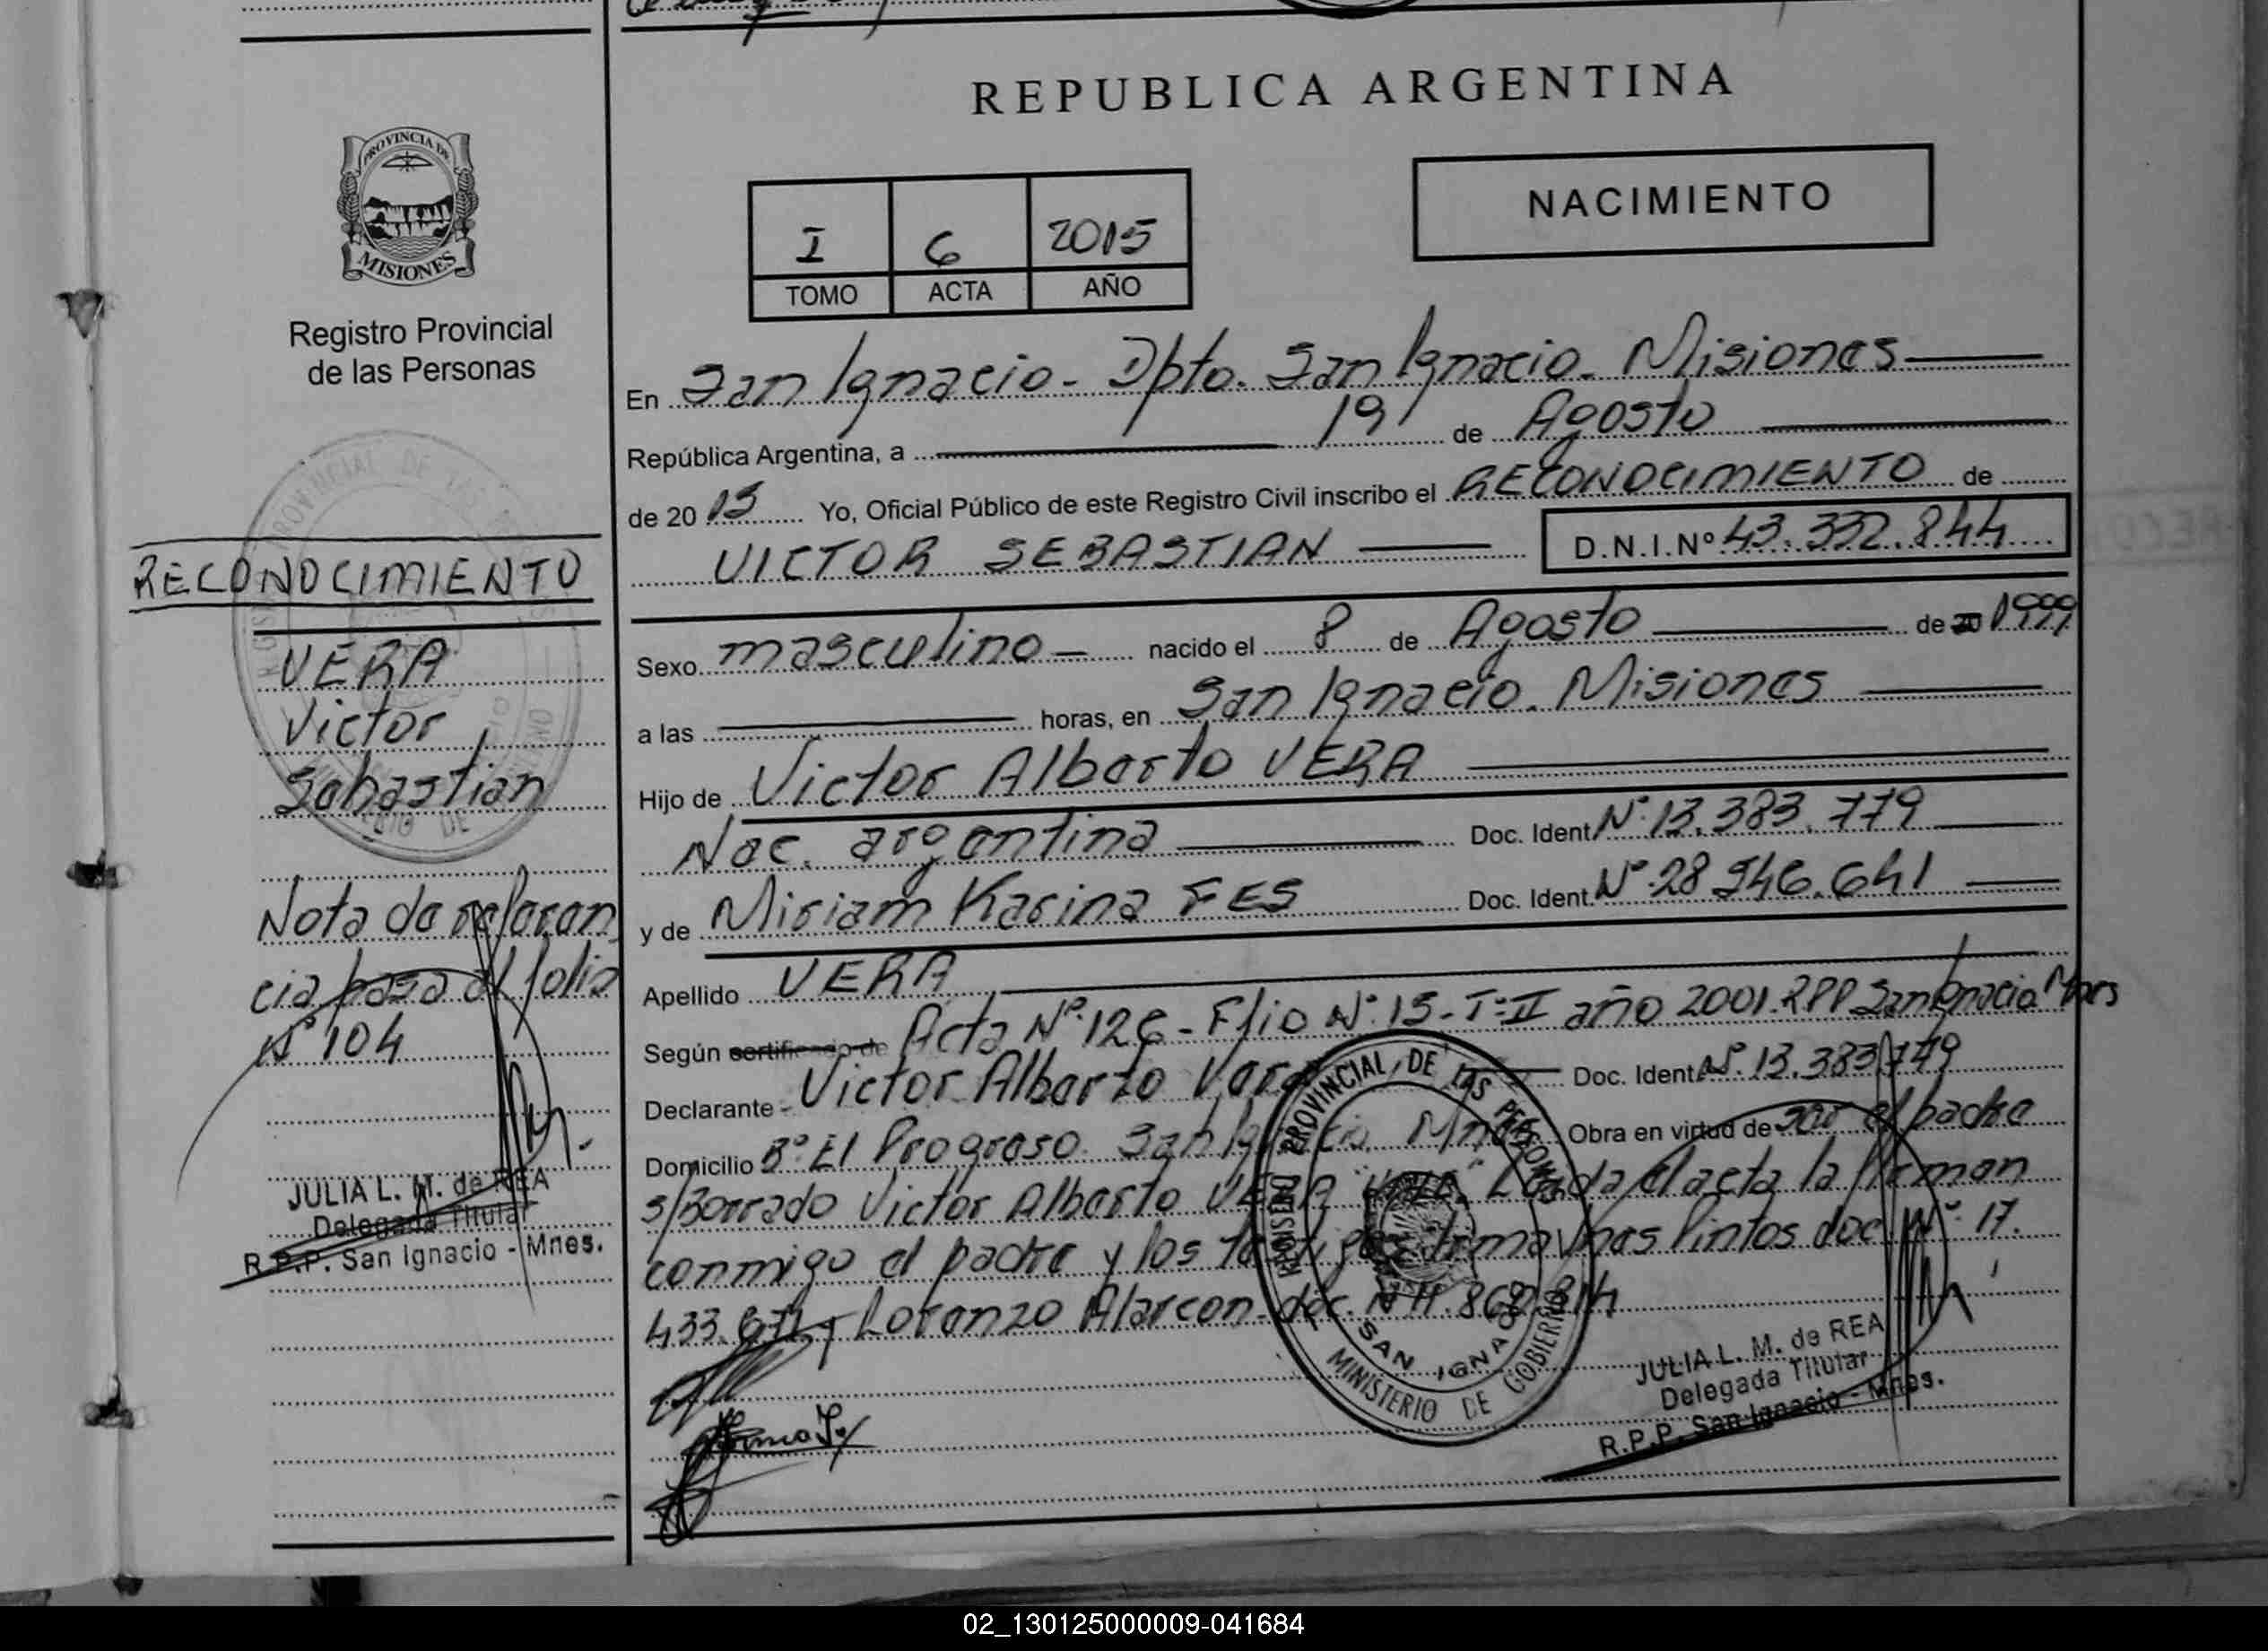 REPUBLICA ARGENTINA
PROVINCIA DE
MISIONES
Registro Provincial
de las Personas
NACIMIENTO
I 6 2015
TOMO ACTA AÑO
En San Ignacio - Dpto. San Ignacio - Misiones
República Argentina, a 19 de Agosto
de 2015 Yo, Oficial Público de este Registro Civil inscribo el RECONOCIMIENTO de
VICTOR SEBASTIAN D.N.I.Nº 43.332.844
Sexo masculino nacido el 8 de Agosto de 20 1999
a las horas, en San Ignacio. Misiones
Hijo de Victor Alberto VERA
Nac. argentina Doc. Ident Nº 13.383.779
y de Miriam Karina FES Doc. Ident. Nº 28 946.641
Apellido VERA
Según certificado de Acta Nº 126 - Flio Nº 15 - Tº II año 2001. RPP San Ignacio Mnes
Declarante - Victor Alberto Vera Doc. Ident. Nº. 13.383.779
Domicilio Bº El Progreso. San Ignacio. Mnes. Obra en virtud de ser el padre
s/Borrado Victor Alberto VERA "Vale" Leída el acta la firman
conmigo el padre y los testigos Irma Pintos doc Nº 17.
433. Lorenzo Alarcon doc. Nº 814
RECONOCIMIENTO
VERA
Victor
Sebastian
Nota de referen
cia pasa al folio
Nº 104
JULIA L. M. de REA
Delegada Titular
R.P.P. San Ignacio - Mnes.
PROVINCIAL DE LAS PERSONAS
SAN IGNACIO
MINISTERIO DE GOBIERNO
JULIA L. M. de REA
Delegada Titular
R.P.P. San Ignacio - Mnes.
02_130125000009-041684